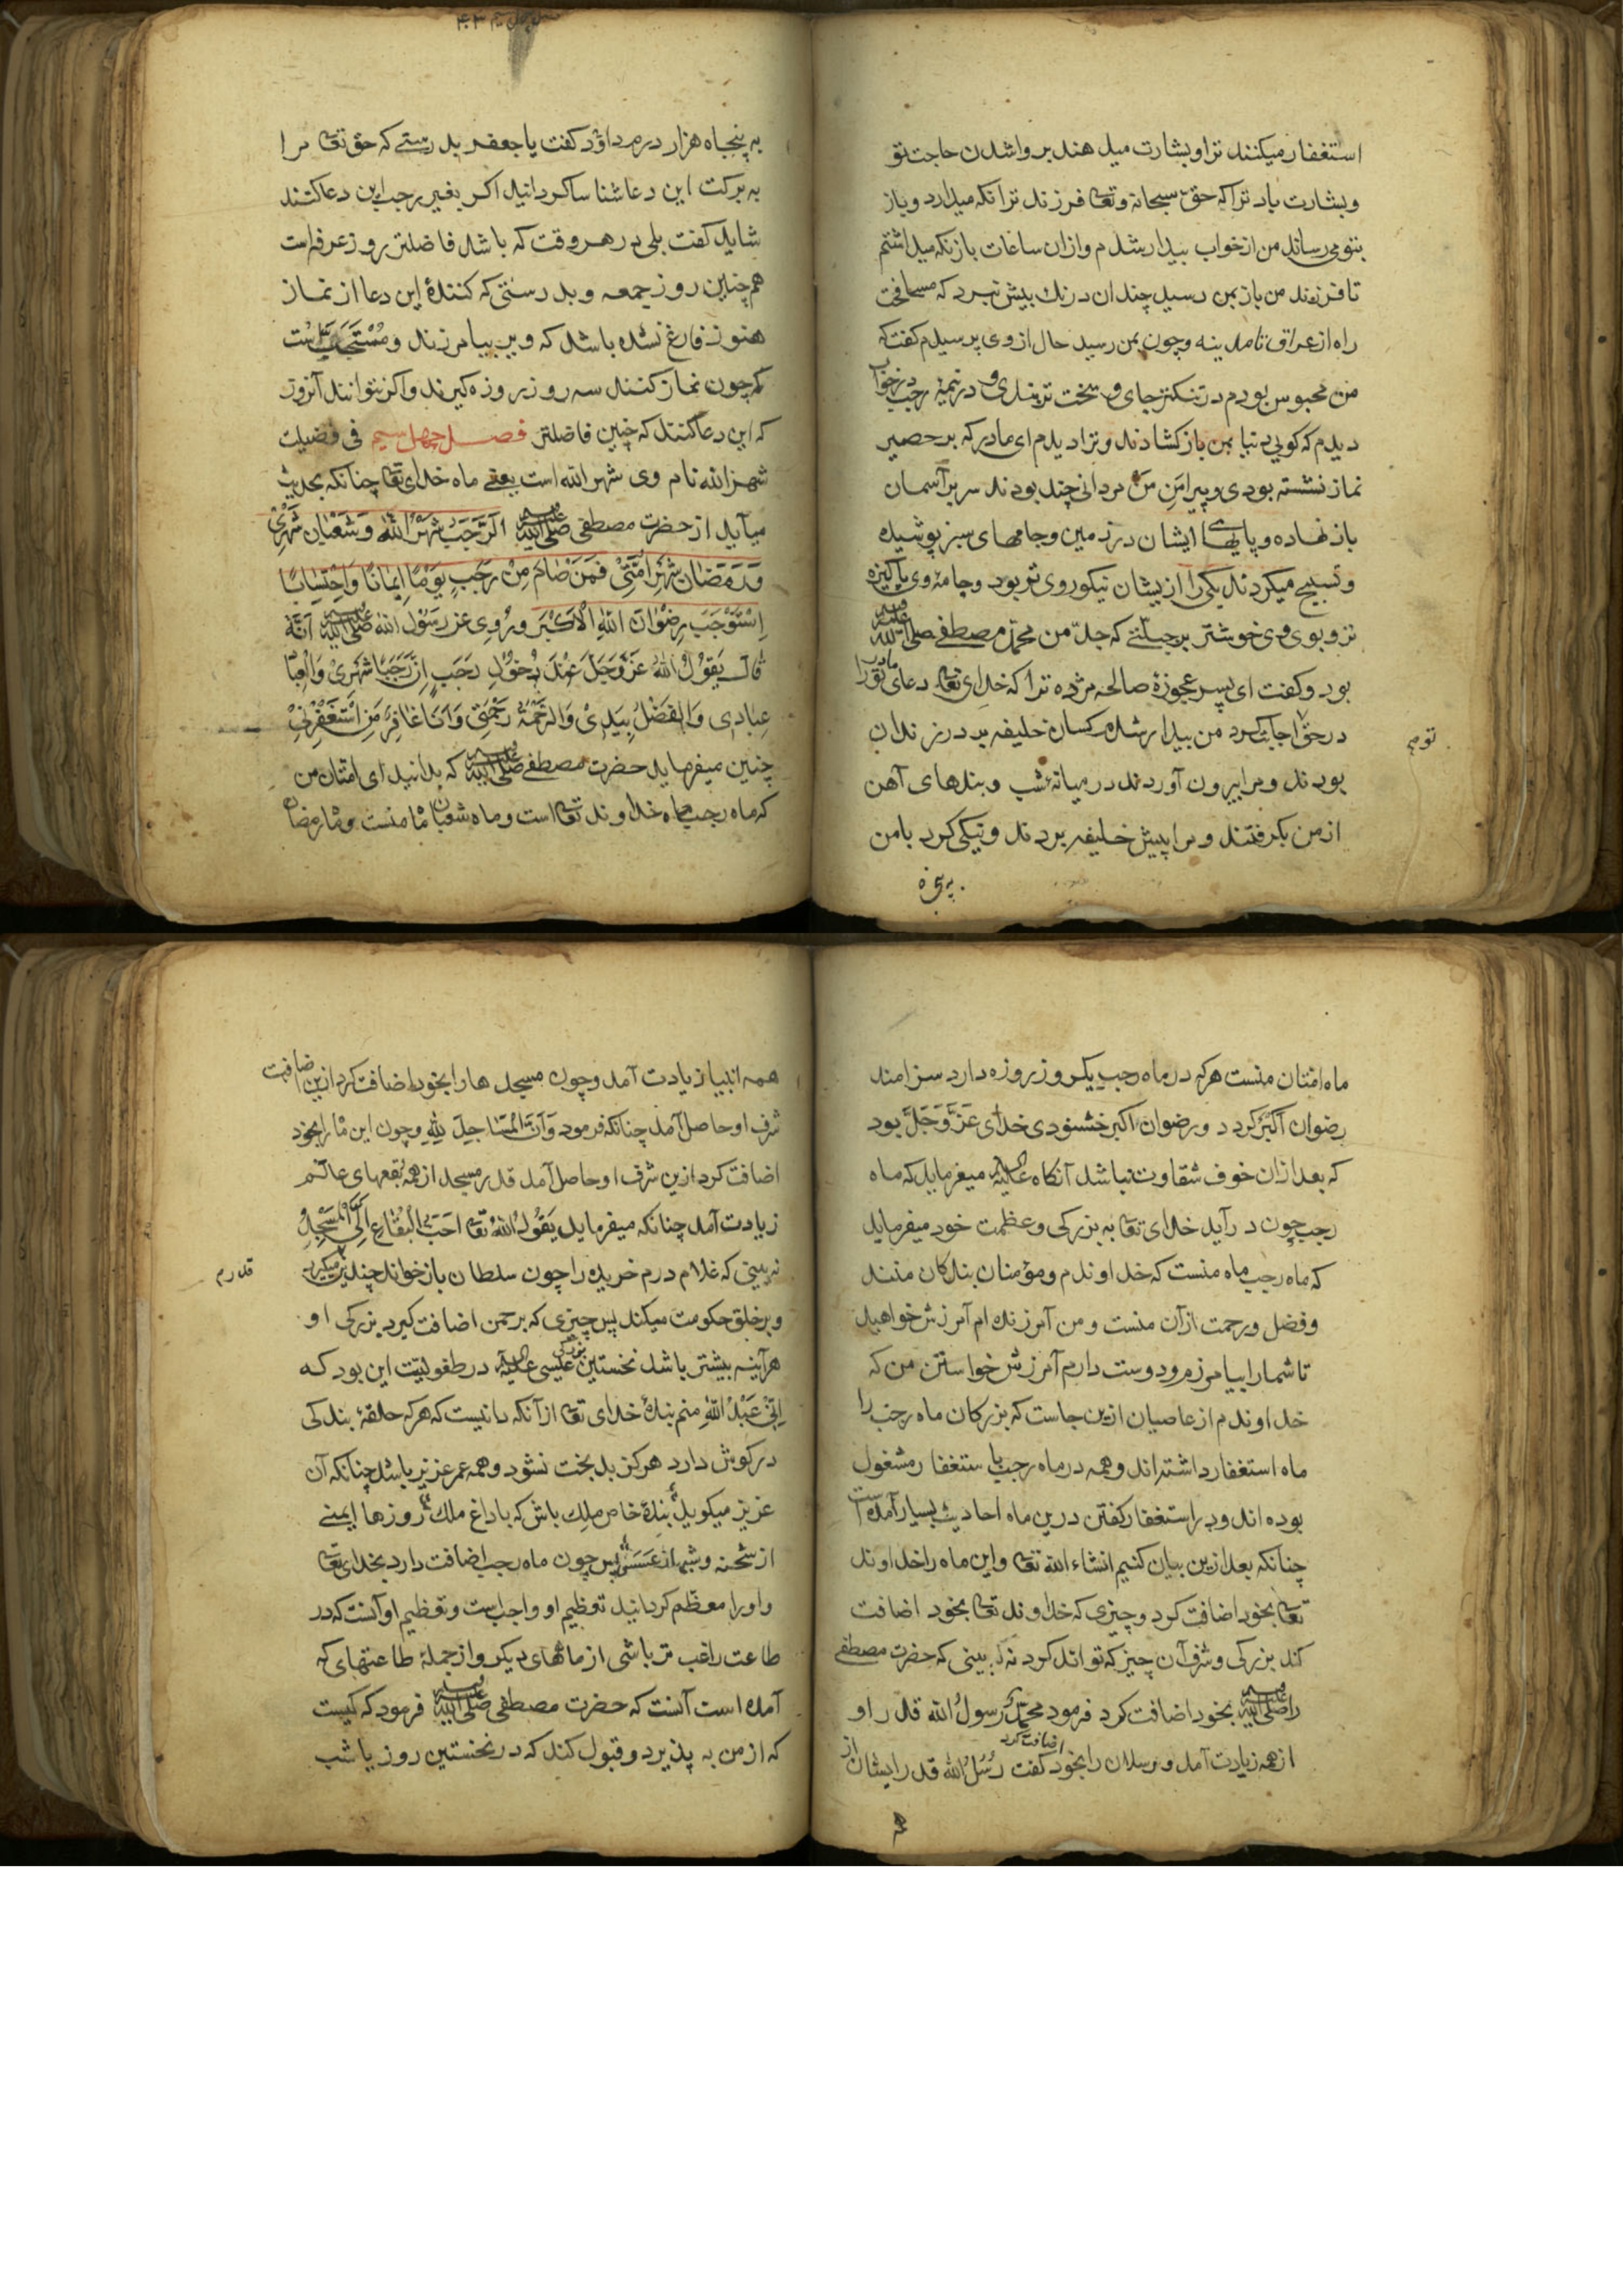 استغفار میکنند ترا و بشارت میدهند بروا شدن حاجت تو
و بشارت باد ترا که حق سبحانه و تعا فرزند ترا نکه میدارد و باز
بتو می رساند من از خواب بیدار شدم و از ان ساعات باز نکه میداشتم
تا فرزند من باز بمن رسید چندان درنك بیش نبرد که مسافت
راه از عراق تا مدینه و چون بمن رسید حال از وی پرسیدم کفت که
من محبوس بودم در تنکتر جای و سخت تر بندی و در نیمۀ رجب در خواب
دیدم که کویی دنیا بمن باز کشادند و ترا دیدم ای مادر که بر حصیر
نماز نشسته بودی و پیرامن من مردانی چند بودند سر بر آسمان
باز نهاده و پایهای ایشان در زمین و جامهای سبز پوشیده
و تسبیح میکردند یکی از ایشان نیکو روی تر بود و جامۀ وی پاکیزه
تر و بوی وی خوشتر برجستے که جد من محمد مصطفے صلی الله علیه
بود و کفت ای پسر عجوزۀ صالحه مژده ترا که خدای تعا دعای مادر تورا
در حق اجابت کرد من بیدار شدم کسان خلیفه بر در زندان
تو هم
بودند و مرا بیرون آوردند در میانۀ شب و بندهای آهن
از من بکرفتند و مرا پیش خلیفه بردند و نیکی کرد با من
به پنجاه هزار درم داؤد کفت یا جعفر بدرستے که حق تعا مرا
به برکت این دعا شناسا کردانید اکر بغیر رجب این دعا کنند
شاید کفت بلی در هر وقت که باشد فاضلتر روز عرفه است
هم چنین روز جمعه و بدرستی که کنندۀ این دعا از نماز
هنوز فارغ نشده باشد که ویرا بیامرزند و مستحب است
که چون نماز کنند سه روز روزه کیرند و اکر نتوانند آنروز
که این دعا کنند که چنین فاضلتر فصل چهل سیم فی فضیلت
شهر الله نام وی شهر الله است یعنے ماه خدای تعا چنانکه بحدیث
میآید از حضرت مصطفی صلی الله علیه اَلَرَّجَبَ شَهْرُ اللّٰهِ وَ شَعْبَان شَهْرِیْ
وَ رَمَضَان شَهْرُ اُمَّتِیْ فَمَنْ صَامَ مِنْ رَجَبٍ یَوْمًا اِیْمَانًا وَ اِحْتِسَابًا
اِسْتَوْجَبَ رِضْوَان اللّٰهِ الْاَکْبَر وَ رُوِیَ عن رَسُوْل الله صلی الله علیه اَنَّهٗ
قَالَ یَقُوْلُ اللّٰهُ عَزَّ وَجَلَّ عِنْدَ دُخُوْلِ رَجَبَ اِنَّ رَجَبًا شَهْرِیْ وَ الْعِبَادُ
عِبَادِی وَ الْفَضْلُ بِیَدِیْ وَ الرَّحْمَةُ رَحْمَتِیْ وَ اَنَا غَافِرٌ مَنِ اسْتَغْفَرَنِیْ
چنین میفرماید حضرت مصطفے صلی الله علیه که بدانید ای امتان من
که ماه رجب ماه خداوند تعا است و ماه شعبان ماه منست و ماه رمضان
ماه امتان منست هرکه در ماه رجب یکروز روزه دارد سزامند
رضوان اکبر کردد و رضوان اکبر خشنودی خدای عَزَّ وَ جَلَّ بود
که بعد ازان خوف شقاوت نباشد آنکاه علیه میفرماید که ماه
رجب چون در آید خدای تعا به بزرکی و عظمت خود میفرماید
که ماه رجب ماه منست که خداوندم و مؤمنان بندکان منند
و فضل و رحمت ازآن منست و من آمرزنده ام آمرزش خواهید
تا شما را بیامرزم و دوست دارم آمرزش خواستن من که
خداوندم از عاصیان ازین جاست که بزرکان ماه رجب را
ماه استغفار داشته اند و همه در ماه رجب باستغفار مشغول
بوده اند و در استغفار کفتن درین ماه احادیث بسیار آمده است
چنانکه بعد ازین بیان کنیم انشاء الله تعا و این ماه را خداوند
تعا بخود اضافت کرد و چیزی که خداوند تعا بخود اضافت
کند بزرکی و شرف آن چیز که تواند کرد نه بینی که حضرت مصطفے
را صلی الله علیه بخود اضافت کرد فرمود محمد رسول الله قدر او
از همه زیادت آمد و رسلان را بخود اضافت کرد کفت رُسُلُ الله قدر ایشان از
همه انبیا زیادت آمد و چون مسجدها را بخود اضافت کرد ازین اضافت
شرف او حاصل آمد چنانکه فرمود وَ اَنَّ الْمَسَاجِدَ لِلّٰهِ و چون این ماه را بخود
اضافت کرد ازین شرف او حاصل آمد قدر مسجد از همه بقعهای عالم
زیادت آمد چنانکه میفرماید یَقُوْلُ اللّٰهُ تعا اَحَبُّ الْبُقَاعِ اِلَیَّ الْمَسْجِدُ
نه بینی که غلام درم خریده را چون سلطان باز خواند چند بر میکیرد
قدرم
و بر خلق حکومت میکند پس چیزی که برحمن اضافت کیرد بزرکی او
هرآینه بیشتر باشد نخستین بزرکی عیسی علیه در طفولیت این بود که
اِنِّیْ عَبْدُ اللّٰهِ منم بندۀ خدای تعا از آنکه دانست که هرکه حلقۀ بندکی
در کوش دارد هرکز بدبخت نشود و همه عمر عزیز باشد چنانکه آن
عزیز میکوید بندۀ خاص ملك باش که با داغ ملك روزها ایمنے
از شحنه و شبها از عسس پس چون ماه رجب اضافت دارد بخدای تعا
و اورا معظم کردانید تعظیم او واجب است و تعظیم او آنست که در
طاعت راغب تر باشی از ماههای دیکر و از جملۀ طاعتهای که
آمده است آنست که حضرت مصطفی صلی الله علیه فرمود که کیست
که از من به پذیرد و قبول کند که در نخستین روز یا شب